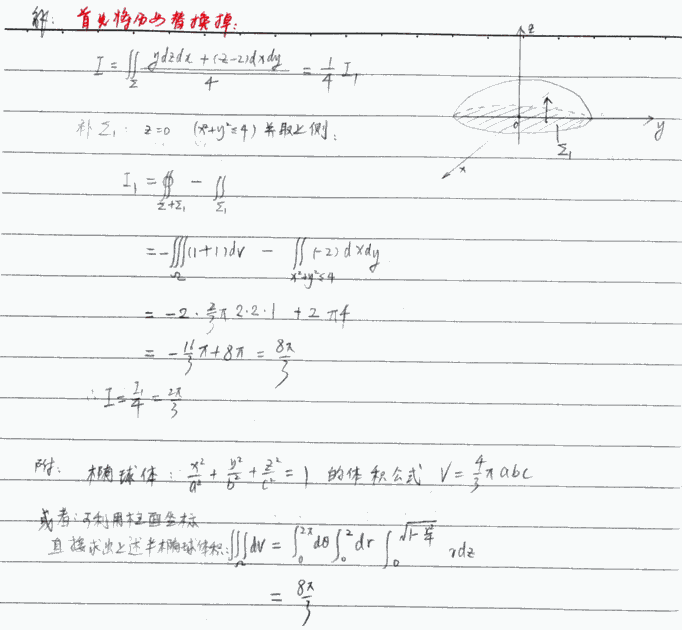 解: 首先将历必替换掉:
z
I = ∬_Σ (ydzdx + (-z-2)dxdy)/4 = 1/4 I₁
补Σ₁: z=0 (x²+y²≤4) 并取上侧.
o
y
Σ₁
x
I₁ = ∯_{Σ+Σ₁} - ∬_{Σ₁}
= -∭_Ω (1+1)dv - ∬_{x²+y²≤4} (-2) dxdy
= -2 · 2/3 π 2·2·1 + 2 π4
= -16/3 π + 8π = 8π/3
∴ I = I₁/4 = 2π/3
附: 椭球体: x²/a² + y²/b² + z²/c² = 1 的体积公式 V = 4/3 π abc
或者: 可利用柱面坐标
直接求出上述半椭球体积: ∭_Ω dv = ∫₀^{2π} dθ ∫₀² dr ∫₀^{√(1-r²/4)} rdz
= 8π/3